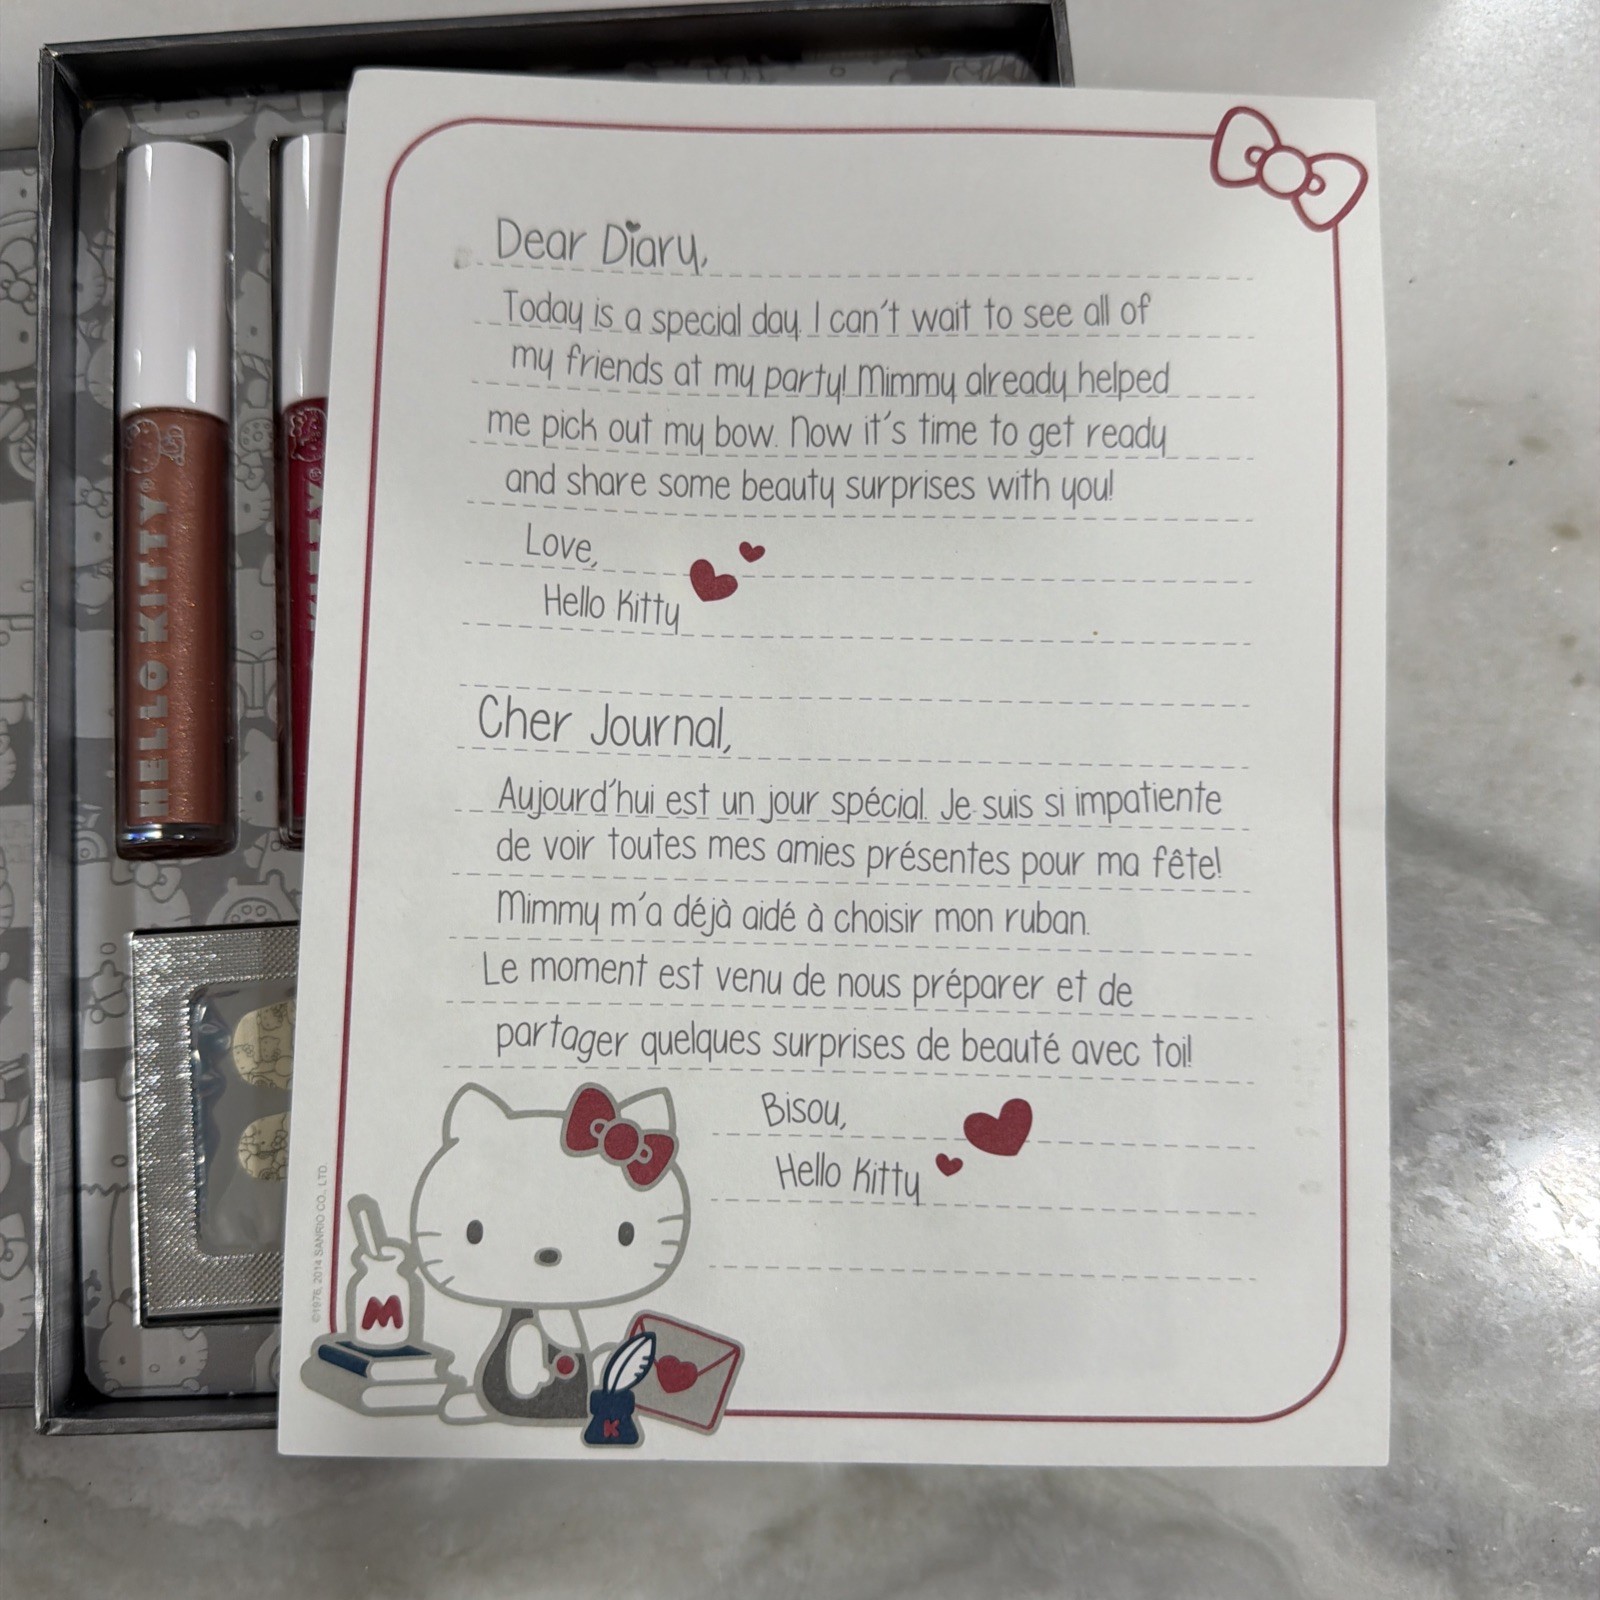 Dear Diary,
Today is a special day. I can't wait to see all of
my friends at my party! Mimmy already helped
me pick out my bow. Now it's time to get ready
and share some beauty surprises with you!
Love,
Hello Kitty
Cher Journal,
Aujourd'hui est un jour spécial. Je suis si impatiente
de voir toutes mes amies présentes pour ma fête!
Mimmy m'a déjà aidé à choisir mon ruban.
Le moment est venu de nous préparer et de
partager quelques surprises de beauté avec toi!
Bisou,
Hello Kitty
M
K
©1976, 2014 SANRIO CO., LTD.
HELLO KITTY®
KITTY®